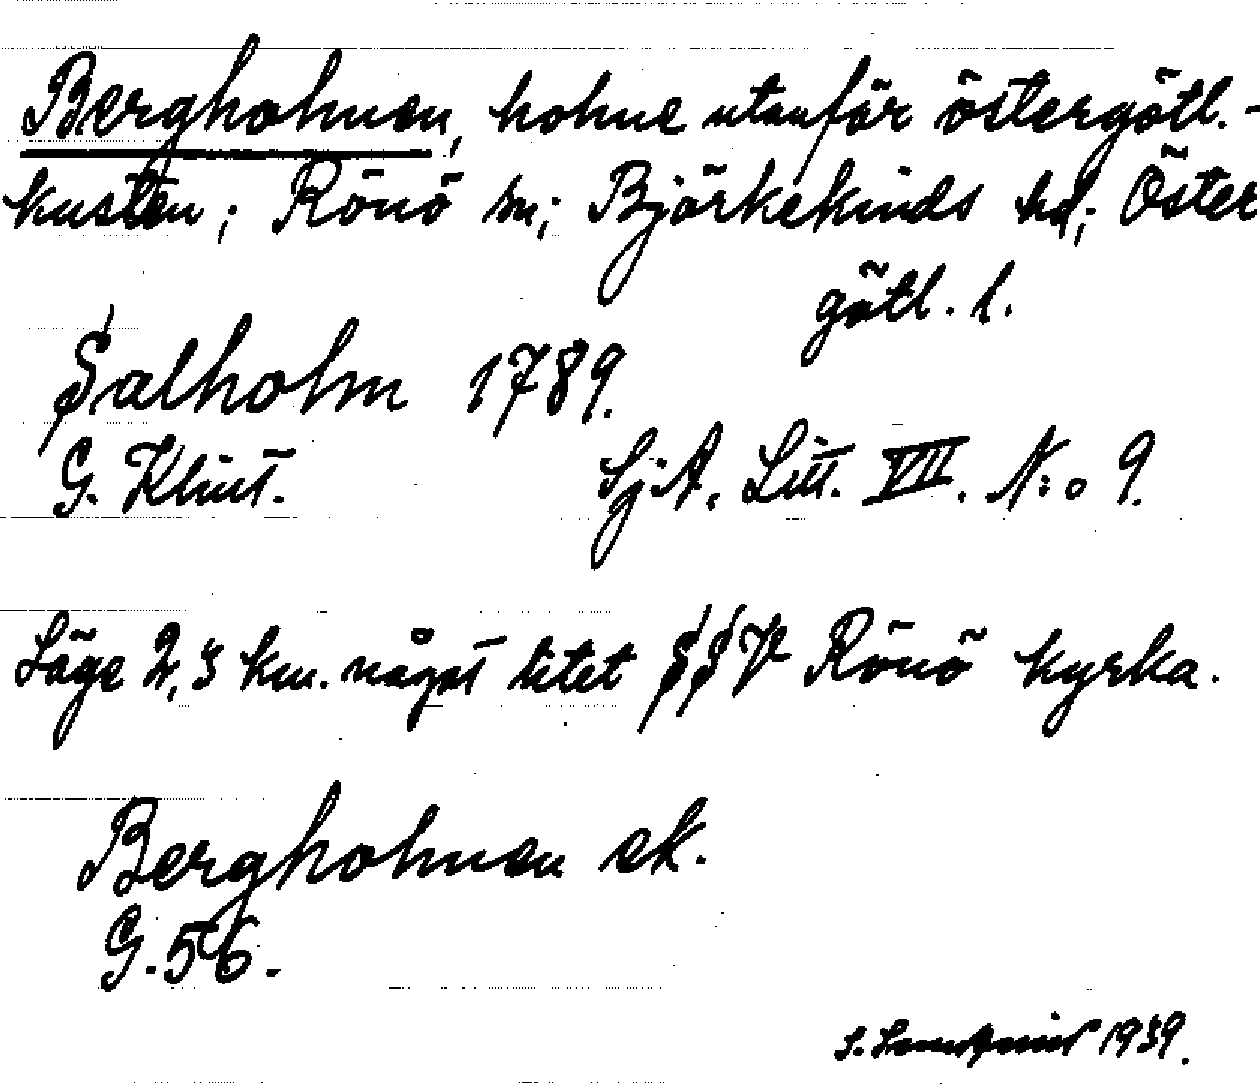 Bergholmen, holme utanför östergötl.-
kusten; Rönö sn; Björkekinds hd; Öster
götl. l.
Salholm 1789.
G. Klint. Sj.A. Litt. VII. N:o 9.
Läge 2,3 km. något litet SSV Rönö kyrka.
Bergholmen ek.
G. 56.
1939.